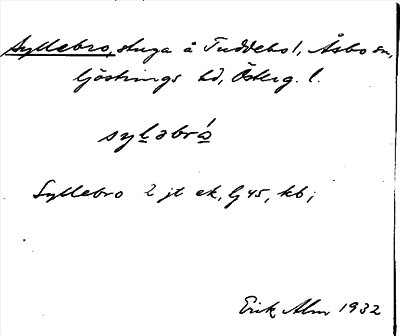 Syllebro, stuga å Tuddebo 1, Åsbo sn,
Göstrings hd, Österg. l.
syłəbró̱
Syllebro 2 jt ek, Gj 45, kb;
Erik Alm 1932